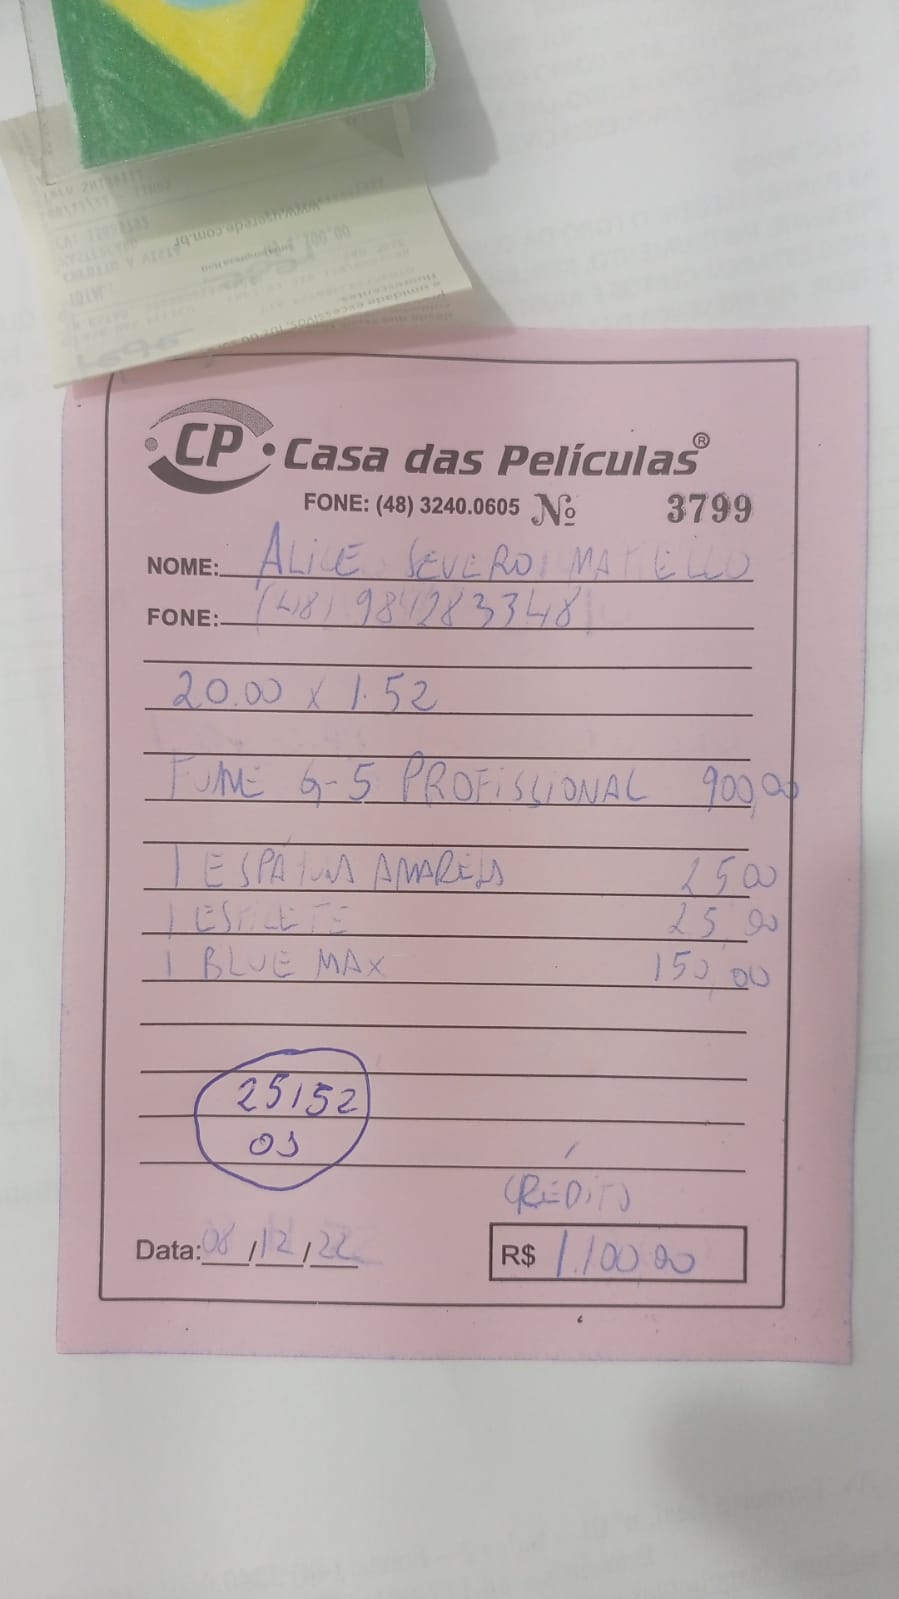 www.userede.com.br
rede
CP Casa das Películas®
FONE: (48) 3240.0605 Nº 3799
NOME: ALICE SEVERO
FONE: (48) 984283348
20.00 x 1.52
FUMÊ G-5 PROFISSIONAL 900,00
1 ESPÁTULA AMARELA 25,00
1 ESTILETE 25,00
1 BLUE MAX 150,00
25152
OS
CRÉDITO
Data: 08/12/22 R$ 1.100,00